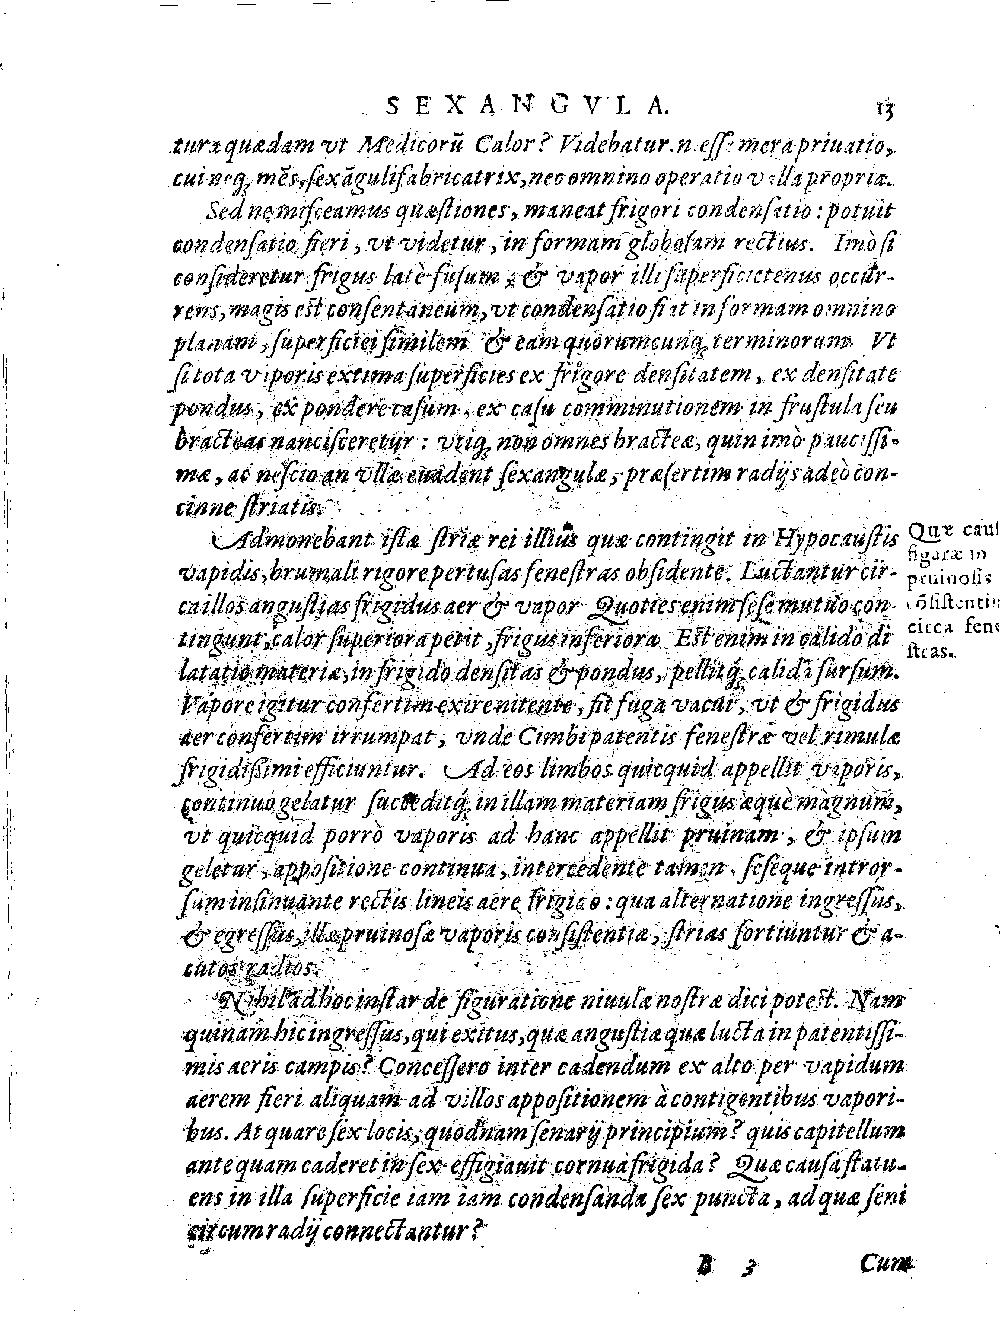 SEXANGVLA. 13
turæ quædam vt Medicorũ Calor? Videbatur .n. esse mera priuatio,
cui neq; mẽs, sexãguli fabricatrix, nec omnino operatio vlla propriæ.
Sed ne misceamus quæstiones, maneat frigori condensatio: potuit
condensatio fieri, vt videtur, in formam globosam rectius. Imò si
consideretur frigus latè fusum, & vapor illi superficietenus occur-
rens, magis est consentaneum, vt condensatio fiat in formam omnino
planam, superficiei similem & eam quorumcunq; terminorum. Vt
si tota vaporis extima superficies ex frigore densitatem, ex densitate
pondus, ex pondere casum, ex casu comminutionem in frustula seu
bracteas nancisceretur: vtiq; non omnes bracteæ, quin imò paucissi-
mæ, ac nescio an vllæ euadent sexangulæ, præsertim radijs adeò con-
cinne striatis.
Admonebant istæ striæ rei illius quæ contingit in Hypocaustis
vapidis, brumali rigore pertusas fenestras obsidente. Luctantur cir-
ca illos angustias frigidus aer & vapor Quoties enim sese mutuo con-
tingunt, calor superiora petit, frigus inferiora Est enim in calido di
latatio materiæ, in frigido densitas & pondus, pelliturq́; calidũ sursum.
Vapore igitur confertim exire nitente, fit fuga vacui, vt & frigidus
aer confertim irrumpat, vnde Cimbi patentis fenestræ vel rimulæ
frigidissimi efficiuntur. Ad eos limbos quicquid appellit vaporis,
continuo gelatur succeditq́; in illam materiam frigus æquè magnum,
vt quicquid porrò vaporis ad hanc appellit pruinam, & ipsum
geletur, appositione continua, intercedente tamen, seseque intror-
sum insinuante rectis lineis aere frigido: qua alternatione ingressus,
& egressus, illæ pruinosæ vaporis consistentiæ, strias sortiuntur & a-
cutos radios.
Nihil ad hoc instar de figuratione niuulæ nostræ dici potest. Nam
quinam hic ingressus, qui exitus, quæ angustiæ quæ lucta in patentissi-
mis aeris campis? Concessero inter cadendum ex alto per vapidum
aerem fieri aliquam ad villos appositionem à contigentibus vapori-
bus. At quare sex locis, quodnam senarij principium? quis capitellum
ante quam caderet in sex effigiauit cornua frigida? Quæ causa statu-
ens in illa superficie iam iam condensanda sex puncta, ad quæ seni
circum radij connectantur?
B 3 Cum
Quæ caus
figuræ in
pruinosis
cõsistentin
circa fene
stras.